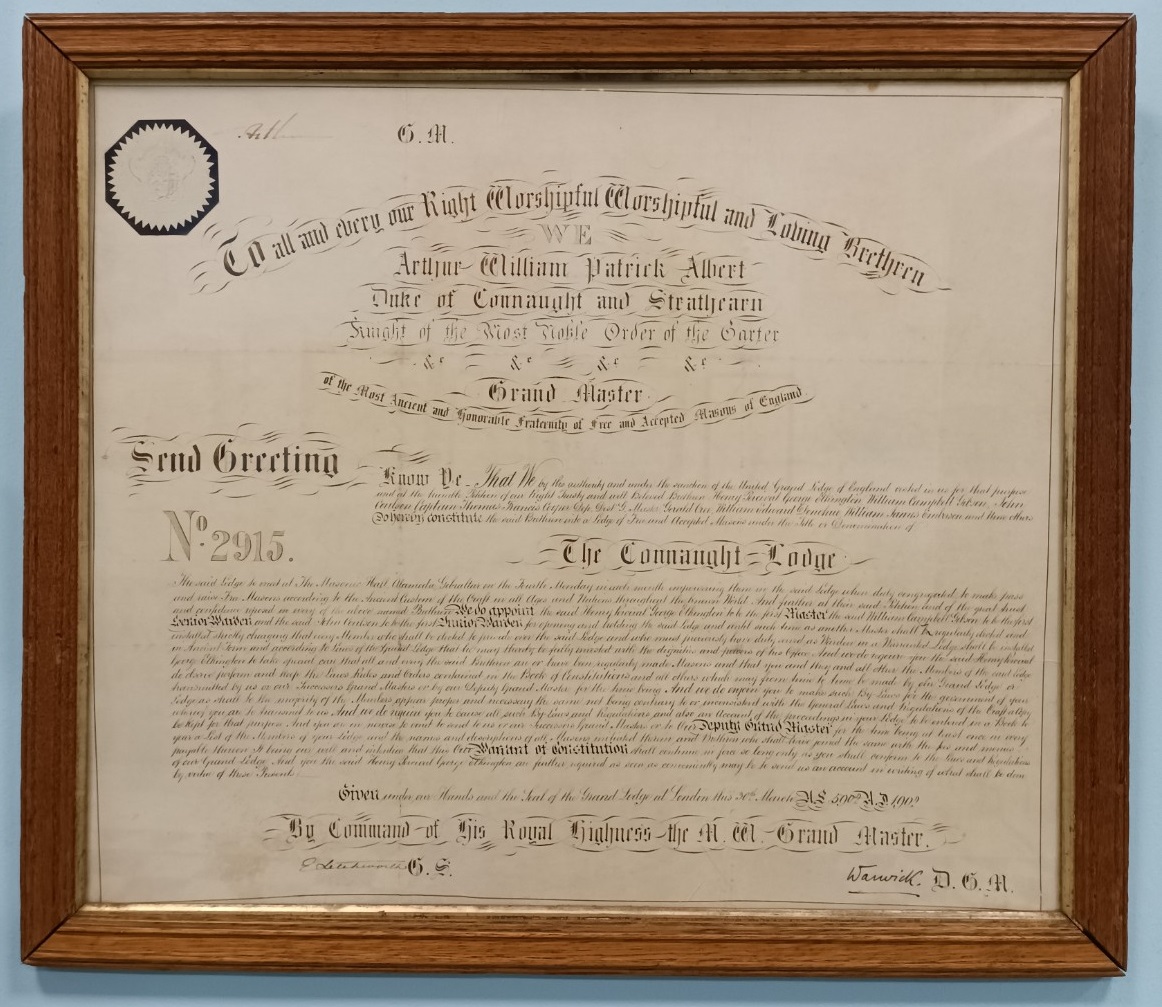 G. M.
To all and every our Right Worshipful Worshipful and Loving Brethren
WE
Arthur William Patrick Albert
Duke of Connaught and Strathearn
Knight of the Most Noble Order of the Garter
&c &c &c &c
Grand Master
of the Most Ancient and Honorable Fraternity of Free and Accepted Masons of England
Send Greeting
Know Ye That We by the authority and under the sanction of the United Grand Lodge of England vested in us for that purpose
and at the humble Petition of our Right Trusty and well Beloved Brethren Henry Percival George Elkington William Campbell Gibson John
Captain Thomas Francis Dist. G. Master Gerald William Edward William James and three others
Do hereby constitute the said Brethren into a Lodge of Free and Accepted Masons under the Title or Denomination of
No. 2915.
The Connaught Lodge
The said Lodge to meet at The Masonic Hall Alameda Gibraltar on the Fourth Monday in each month empowering them in the said Lodge when duly congregated to make pass
and raise Free Masons according to the Ancient Custom of the Craft in all Ages and Nations throughout the known World And further at their said Petition and of the great trust
and confidence reposed in every of the above named Brethren We do appoint the said Henry Percival George Elkington to be the first Master the said William Campbell Gibson to be the first
Senior Warden and the said John to be the first Junior Warden for opening and holding the said Lodge and until such time as another Master shall be regularly elected and
installed strictly charging that every Member who shall be elected to preside over the said Lodge and who must previously have duly served as Warden in a Warranted Lodge shall be installed
in Ancient Form and according to Laws of the Grand Lodge that he may thereby be fully invested with the dignities and powers of his Office And we do require you the said Henry Percival
George Elkington to take special care that all and every the said Brethren are or have been regularly made Masons and that you and they and all other the Members of the said Lodge
do observe perform and keep the Laws Rules and Orders contained in the Book of Constitutions and all others which may from time to time be made by our Grand Lodge or
transmitted by us or our Successors Grand Masters or by our Deputy Grand Master for the time being And we do enjoin you to make such By Laws for the government of your
Lodge as shall to the majority of the Members appear proper and necessary the same not being contrary to or inconsistent with the General Laws and Regulations of the Craft a Copy
whereof you are to transmit to us And we do require you to cause all such By Laws and Regulations and also an Account of the proceedings in your Lodge to be entered in a Book to
be kept for that purpose And you are in nowise to omit to send to us or our Successors Grand Masters or to Our Deputy Grand Master for the time being at least once in every
year a List of the Members of your Lodge and the names and descriptions of all Masons initiated therein and Brethren who shall have joined the same with the fees and monies
payable thereon It being our will and intention that this Our Warrant of Constitution shall continue in force so long only as you shall conform to the Laws and Regulations
of our Grand Lodge And you the said Henry Percival George Elkington are further required as soon as conveniently may be to send us an account in writing of what shall be done
by virtue of these Presents.
Given under our Hands and the Seal of the Grand Lodge at London this 30th March A.L. A.D.
By Command of His Royal Highness the M. W. Grand Master.
E Letchworth G. S.
Warwick. D. G. M.